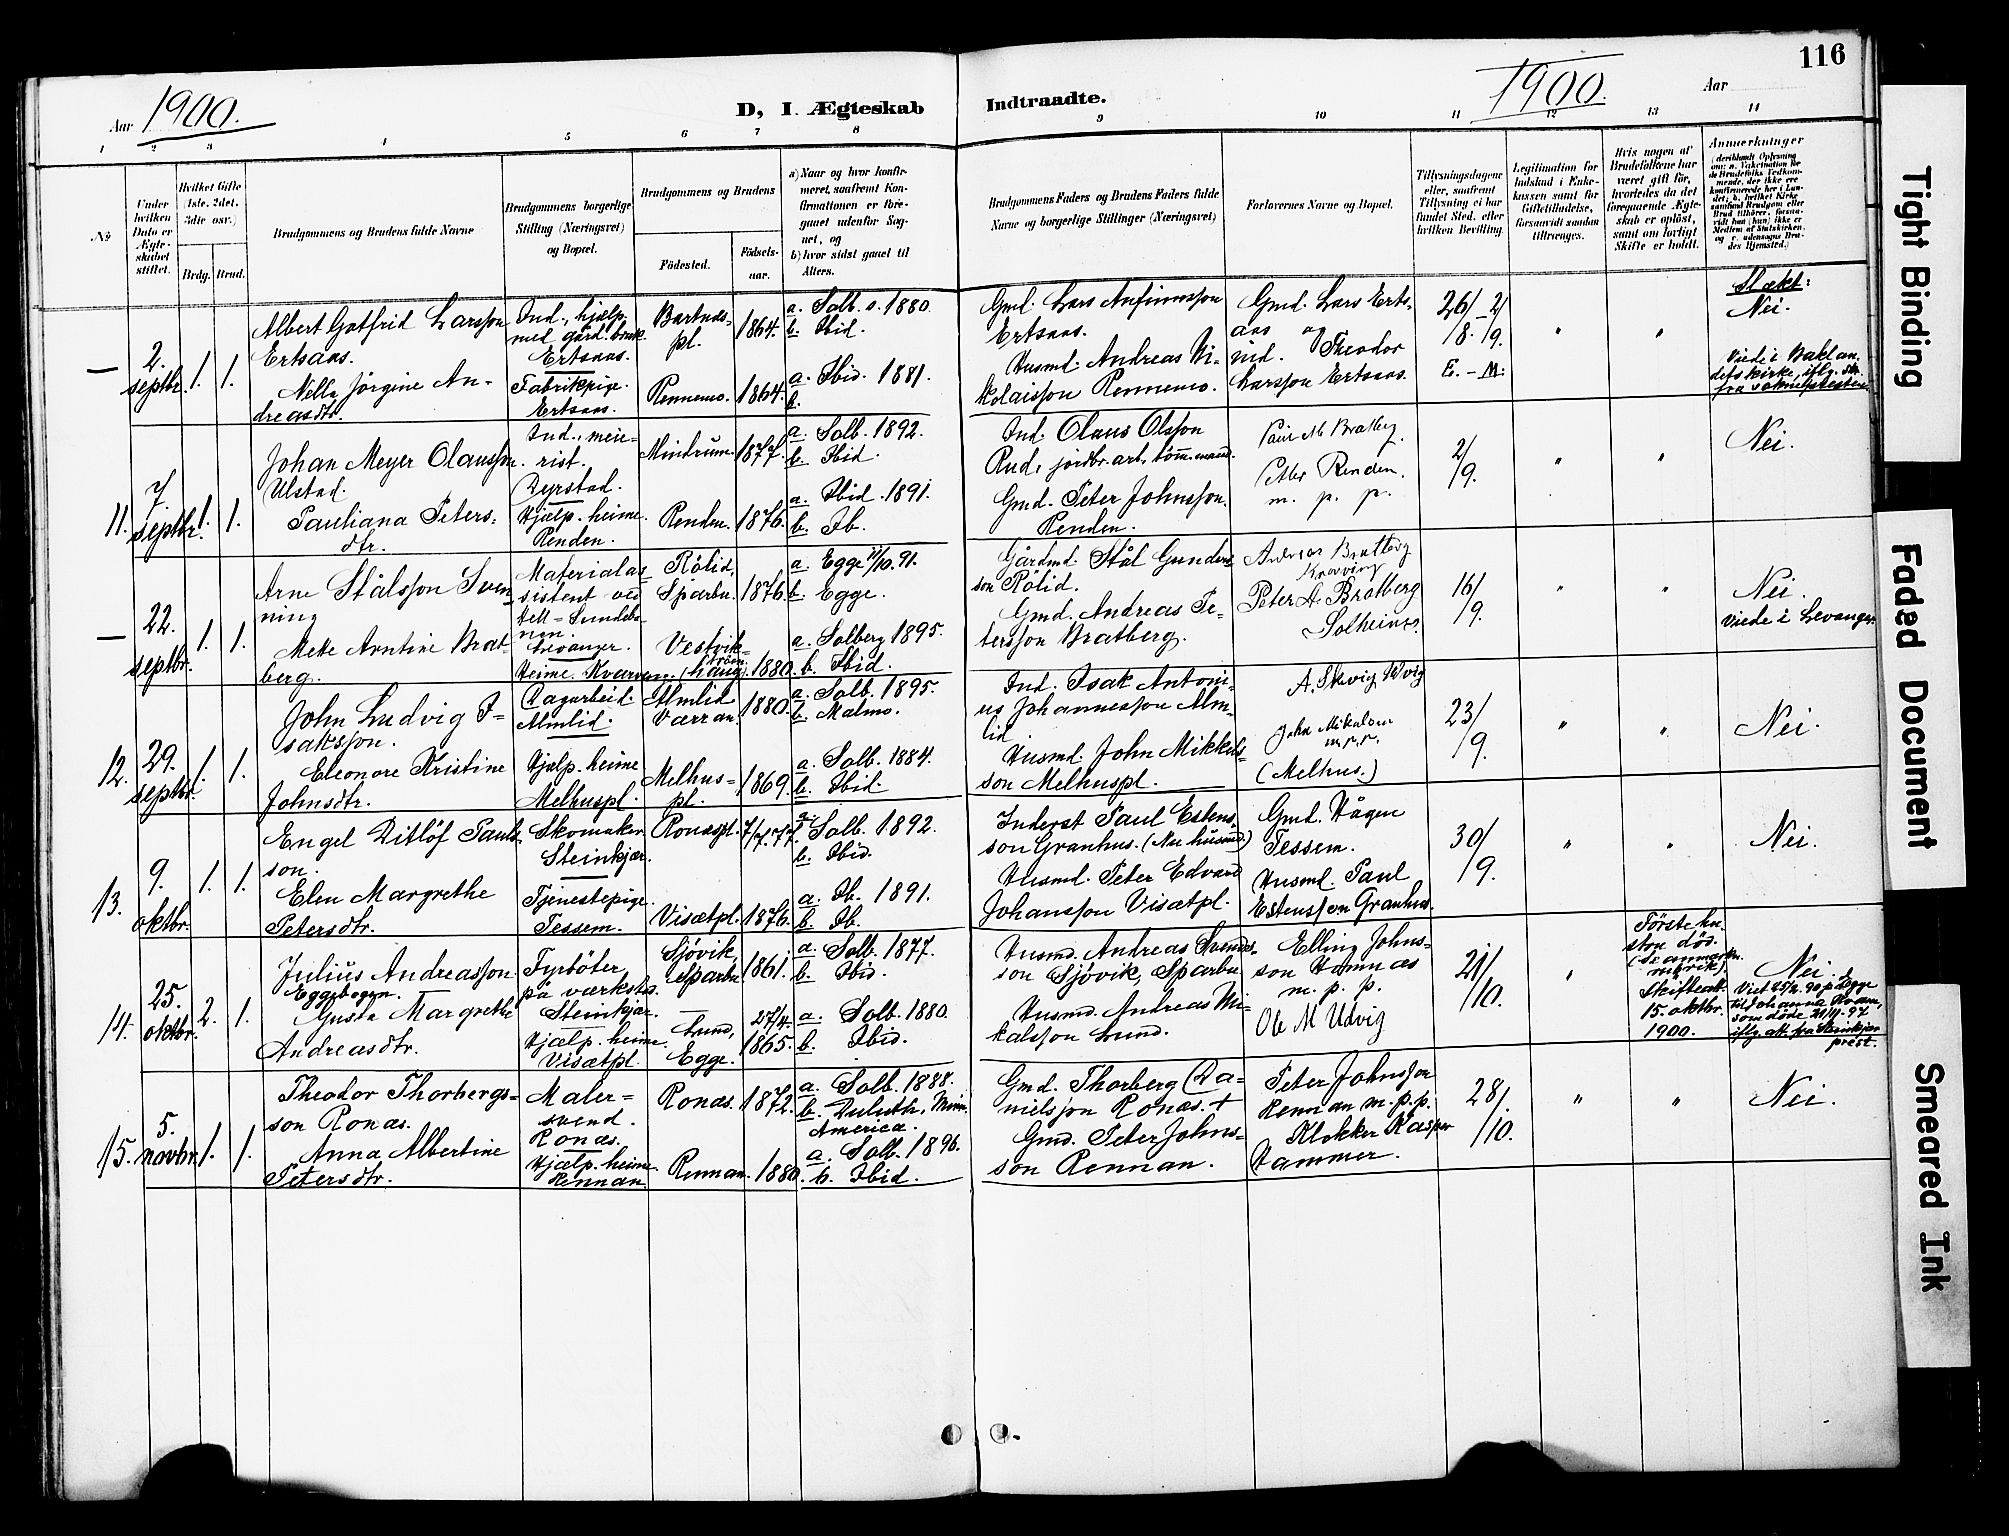 116
Aar 1900.
D, I. Ægteskab Indtraadte.
1900. Aar
1 2 3 4 5 6 7 8 9 10 11 12 13 14
No
Under hvilken Dato er Ægteskabet stiftet.
Hvilket Gifte (1ste. 2det. 3die osv.).
Brdg. Brud.
Brudgommens og Brudens fulde Navne
Brudgommens borgerlige Stilling (Næringsvei) og Bopæl.
Brudgommens og Brudens
Födested. Födselsaar.
a) Naar og hvor konfirmeret, saafremt Konfirmationen er foregaaet udenfor Sognet, og
b) hvor sidst gaaet til Alters.
Brudgommens Faders og Brudens Faders fulde Navne og borgerlige Stillinger (Næringsvei)
Forlovernes Navne og Bopæl.
Tillysningsdagene eller, saafremt Tillysning ei har fundet Sted, efter hvilken Bevilling.
Legitimation for Indskud i Enkekassen samt for Giftetilladelse, forsaavidt saadan tiltrænges.
Hvis nogen af Brudefolkene har været gift för, hvorledes da det foregaaende Ægteskab er oplöst, samt om lovligt Skifte er holdt.
Anmærkninger
—
2. septbr. 1. 1.
Albert Gotfrid Larsson Ertsaas.
Ind., hjælp. med gård. bruk Ertsaas.
Bartnespl. 1864.
a. Solb. s. 1880.
b. Ibid.
Gmd. Lars Anfinnsson Ertsaas.
Gmd. Lars Ertsaas og
ind. Theodor Larsson Ertsaas.
26/8. - 2/9.
E. - M:
" "
Slækt:
Nei.
Nella Jörgine Andreasdtr.
Fabrikpige. Ertsaas.
Rennemo. 1864.
a. Ibid. 1881.
b.
Husmd. Andreas Nikolaisson Rennemo.
11.
7. septbr. 1. 1.
Johan Meyer Olausson Ulstad.
Ind., meierist. Dyrstad.
Mindrum. 1877.
a. Solb. 1892.
b. Ibid.
Ind. Olaus Olsson Rud, jordbr. arb. tömmand.
Bratberg.
Peter Renden.
m. p. p.
2/9.
" "
Nei.
Pauliana Petersdtr.
Hjælp. heime. Renden.
Renden. 1876.
a. Ibid 1891.
b. Ib.
Gmd. Peter Johnsson. Renden.
—
22. septbr. 1. 1.
Arne Stålsson Svenning
Materialassistent ved Hell-Sundebanen. Levanger.
Rölid, Sparbu. 1876.
a. Egge 11/10. 91.
b. Egge.
Gårdmd. Stål Gundersson Rölid.
Andreas Bratberg
Peter A. Bratberg
Solheim.
16/9.
" "
Nei.
Viede i Levanger.
Mette Arntine Bratberg.
Heime.
1880.
a. Solberg 1895.
b. Ibid.
Gmd. Andreas Petersson Bratberg.
12.
29. septbr. 1. 1.
John Ludvig Isaksson.
Dagarbeid. Almlid.
Almlid Værran. 1880.
a. Solb. 1895.
b. Malmo.
Ind. Isak Antonius Johannesson Almlid
John Mikalsen
m.p.p.
(Melhus.)
23/9.
" "
Nei.
Eleonore Kristine Johnsdtr.
Hjælp. heime Melhuspl.
Melhuspl. 1869.
a. Solb. 1884.
b. Ibid.
Husmd. John Mikkelsson Melhuspl.
13.
9. oktbr. 1. 1.
Engel Ditlöf Paulsson.
Skomaker. Steinkjær.
Ronaspl.
a. Solb. 1892.
b. Ibid.
Inderst Paul Estensson Granhus. (Nu husmd.)
Gmd. Hågen Tessem.
Husmd. Paul Estensson Granhus.
30/9.
" "
Nei.
Elen Margrethe Petersdtr.
Tjenestepige. Tessem.
Visætpl. 1876.
a. Ib. 1891.
b. Ib.
Husmd. Peter Edvard Johansson Visætpl.
14.
25. oktbr. 2. 1.
Julius Andreasson Eggebogen.
Fyrböter på værksted. Steinkjær.
Sjövik, Sparbu. 1861.
a. Solb. 1877.
b. Ibid.
Husmd. Andreas Svendsson Sjövik, Sparbu
Elling Johnsson Hamnes
m. p. p.
Ole M Udvig
21/10.
"
Förste kustru död.
(Se anmærkn. rubrik).
Skifteatt. 15. oktbr. 1900.
Nei.
Gusta Margrethe Andreasdtr.
Hjælp. heime. Visætpl.
Lund, Egge. 27/4. 1865.
a. Solb. 1880.
b. Ibid.
Husmd. Andreas Mikalsson Lund.
15.
5. novbr. 1. 1.
Theodor Thorbergsson Ronæs.
Malersvend. Ronæs.
Ronæs. 1872.
a. Solb. 1888.
b. Duluth, Minn. America.
Gmd. Thorberg Danielsson Ronæs. +
Peter Johnsson Rennan m. p. p.
Klokker Kasper Hammer.
28/10.
" "
Nei.
Anna Albertine Petersdtr.
Hjælp. heime. Rennan.
Rennan. 1880.
a. Solb. 1896.
b. Ibid.
Gmd. Peter Johnsson Rennan.
Tight Binding
Faded Document
Smeared Ink